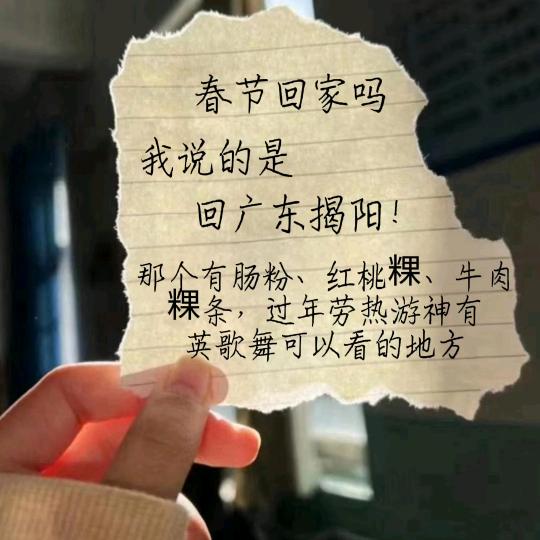 春节回家吗
我说的是
回广东揭阳！
那个有肠粉、红桃粿、牛肉
粿条，过年劳热游神有
英歌舞可以看的地方